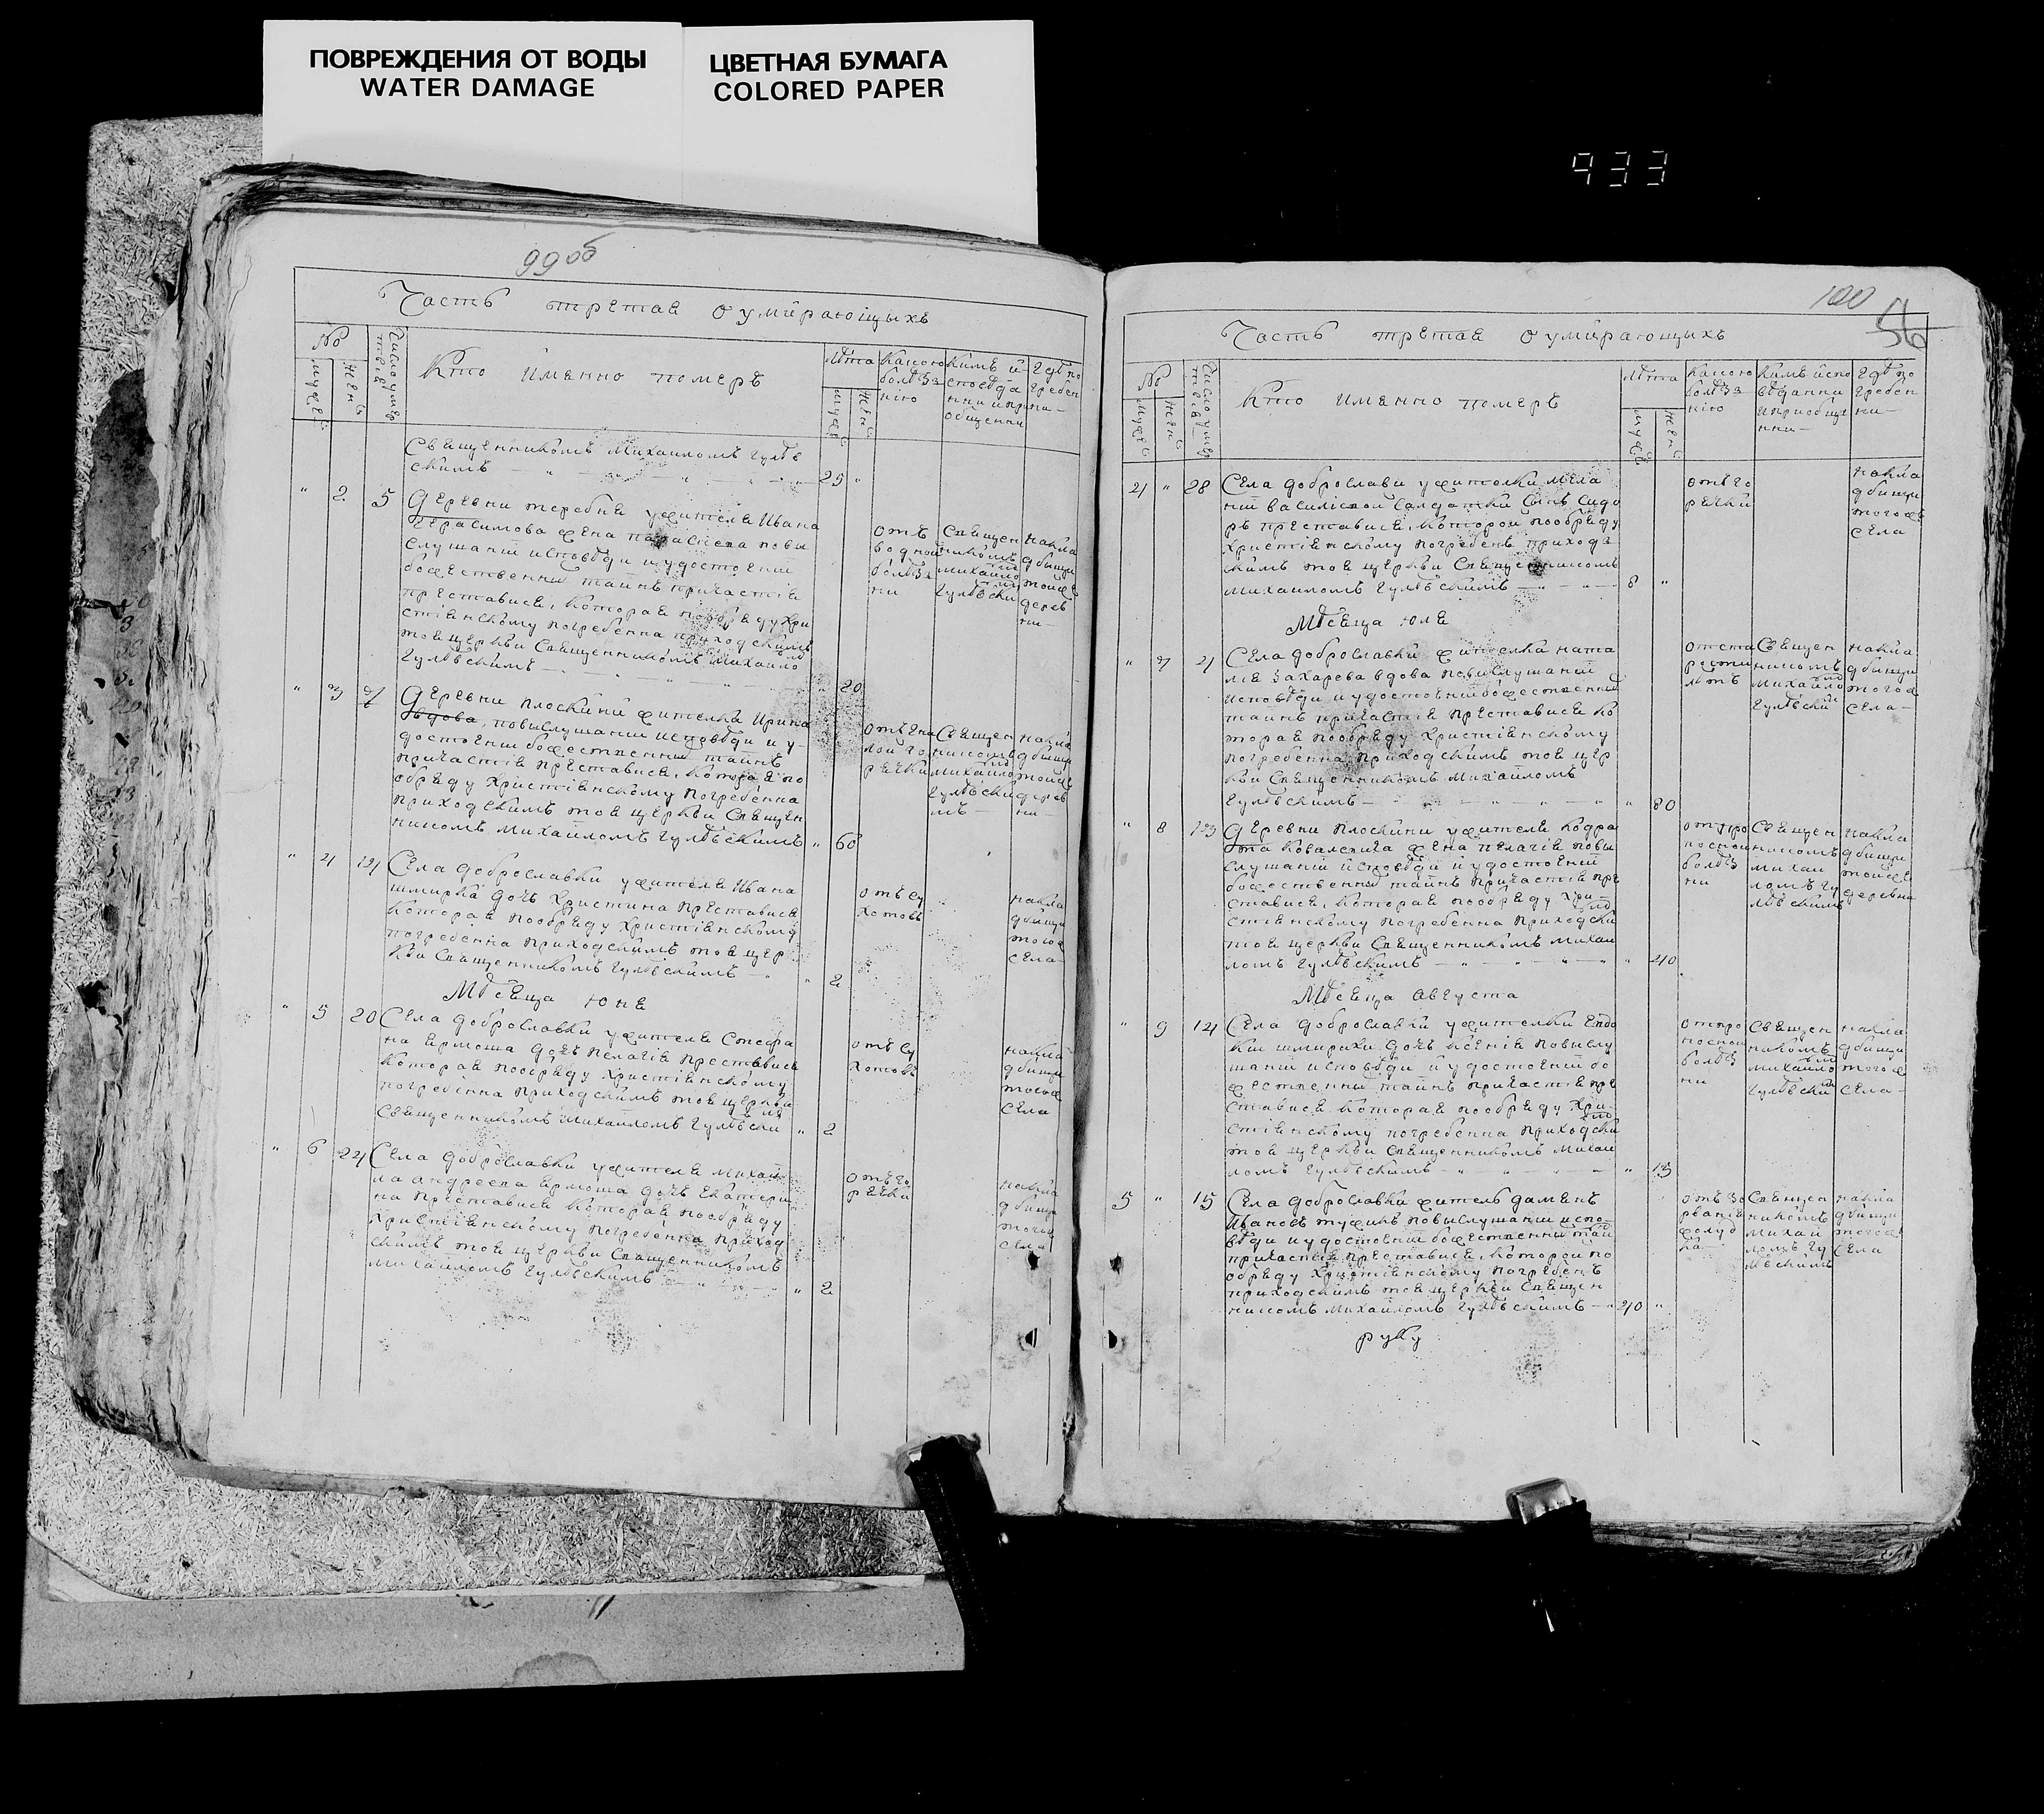 ПОВРЕЖДЕНИЯ ОТ ВОДЫ
WATER DAMAGE
ЦВЕТНАЯ БУМАГА
COLORED PAPER
933
99об
Часть третая о умирающыхъ
№
Кто именно померъ
Лѣта
Какою болѣзнію
Священникомъ Михаиломъ Гулѣв
скимъ 25 "
" 2 5 Деревни теребня ужителя Ивана
Герасимова жена параскева повы
слушаніи исповѣди и удостоеніи
божественны таинъ причастія
преставися, которая пообряду хри
стіянскому погребенна приходскимъ
тоя церкви Священникомъ Михаило
Гулѣвскимъ 20
отъ
водной
болѣз
ни
Священ
никомъ
Михаило
Гулѣвски
накла
дбищи
тоейже
дерев
ни
" 3 7 Деревни плоскини жителка Ирина
вдова, повыслушании исповѣди и у
достоении божественны таинъ
причастія преставися, которая по
обряду христіянскому погребенна
приходскимъ тоя церкви Священ
никомъ Михаиломъ Гулѣвскимъ " 60
Священ
никомъ
Михаило
Гулѣвски
мъ
накла
дбищи
тоейже
дерев
ни
" 4 14 Села доброславки ужителя Ивана
шмирка дочь христина преставися
которая пообряду христіянскому
погребенна приходскимъ тоя цер
кви Священникомъ Гулѣвскимъ " 2
отъ су
хотовъ
накла
дбищи
тогож
села
Мѣсяца юня
" 5 20 Села доброславки ужителя Стефа
на ермоша дочь пелагія преставися
которая пообряду христіянскому
погребенна приходскимъ тоя церкви
Священникомъ Михаиломъ Гулѣвски " 2
отъ су
хотовъ
накла
дбищи
тогож
села
" 6 24 Села доброславки ужителя Михаи
ла андреева ермоша дочь екатери
на преставися которая пообряду
христіянскому погребенна приход
скимъ тоя церкви Священникомъ
Михаиломъ Гулѣвскимъ " 2
отъ го
рячки
накла
дбищи
тогож
села
100
56
Часть третая о умирающихъ
№
Кто именно померъ
Лѣта
Какою
болѣз
нію
Кимъ испо
вѣданни
и приобще
нни
Гдѣ по
гребен
ни
4 " 28 Села доброслави ужителки мела
ніи василіевой салдатки сынъ сидо
ръ преставися, которой пообряду
христіянскому погребенъ приход
скимъ тоя церкви Священникомъ
Михаиломъ Гулѣвскимъ 8 "
отъ го
рячки
накла
дбищи
тогожъ
села
Мѣсяца юля
" 7 4 Села доброславки жителка ната
лія захарева вдова повыслушаніи
исповѣди и удостоеніи божественны
таинъ причастія преставися ко
торая пообряду христіянскому
погребенна приходскимъ тоя цер
кви Священникомъ Михаиломъ
Гулѣвскимъ " 80
Священ
никомъ
Михаило
Гулѣвски
накла
дбищи
тогож
села
" 8 13 Деревни плоскини ужителя кодра
та ковалевича жена пелагія повы
слушаніи исповѣди и удостоеніи
божественны таинъ причастія пре
ставися, которая пообряду хри
стіянскому погребенна приходски
тоя церкви Священникомъ Михаи
ломъ Гулѣвскимъ " 40
Священ
никомъ
Михаи
ломъ Гу
лѣвскимъ
накла
дбищи
тоейже
деревни
Мѣсяца августа
" 9 14 Села доброславки ужителки евдо
кіи шмирихи дочь ксенія повыслу
шаніи исповѣди и удостоеніи бо
жественны таинъ причастія пре
ставися которая пообряду хри
стіянскому погребенна приходски
тоя церкви Священникомъ Михаи
ломъ Гулѣвскимъ " 13
Священ
никомъ
Михаило
Гулѣвски
накла
дбищи
тогож
села
5 " 15 Села доброславки житель даменъ
Ивановъ повыслушании испо
вѣди и удостоении божественны таи
причастія преставися, которой по
обряду христіянскому погребенъ
приходскимъ тоя церкви Священ
никомъ Михаиломъ Гулѣвскимъ 40 "
Священ
никомъ
Михаи
ломъ Гу
лѣвскимъ
накла
дбищи
тогож
села
руку